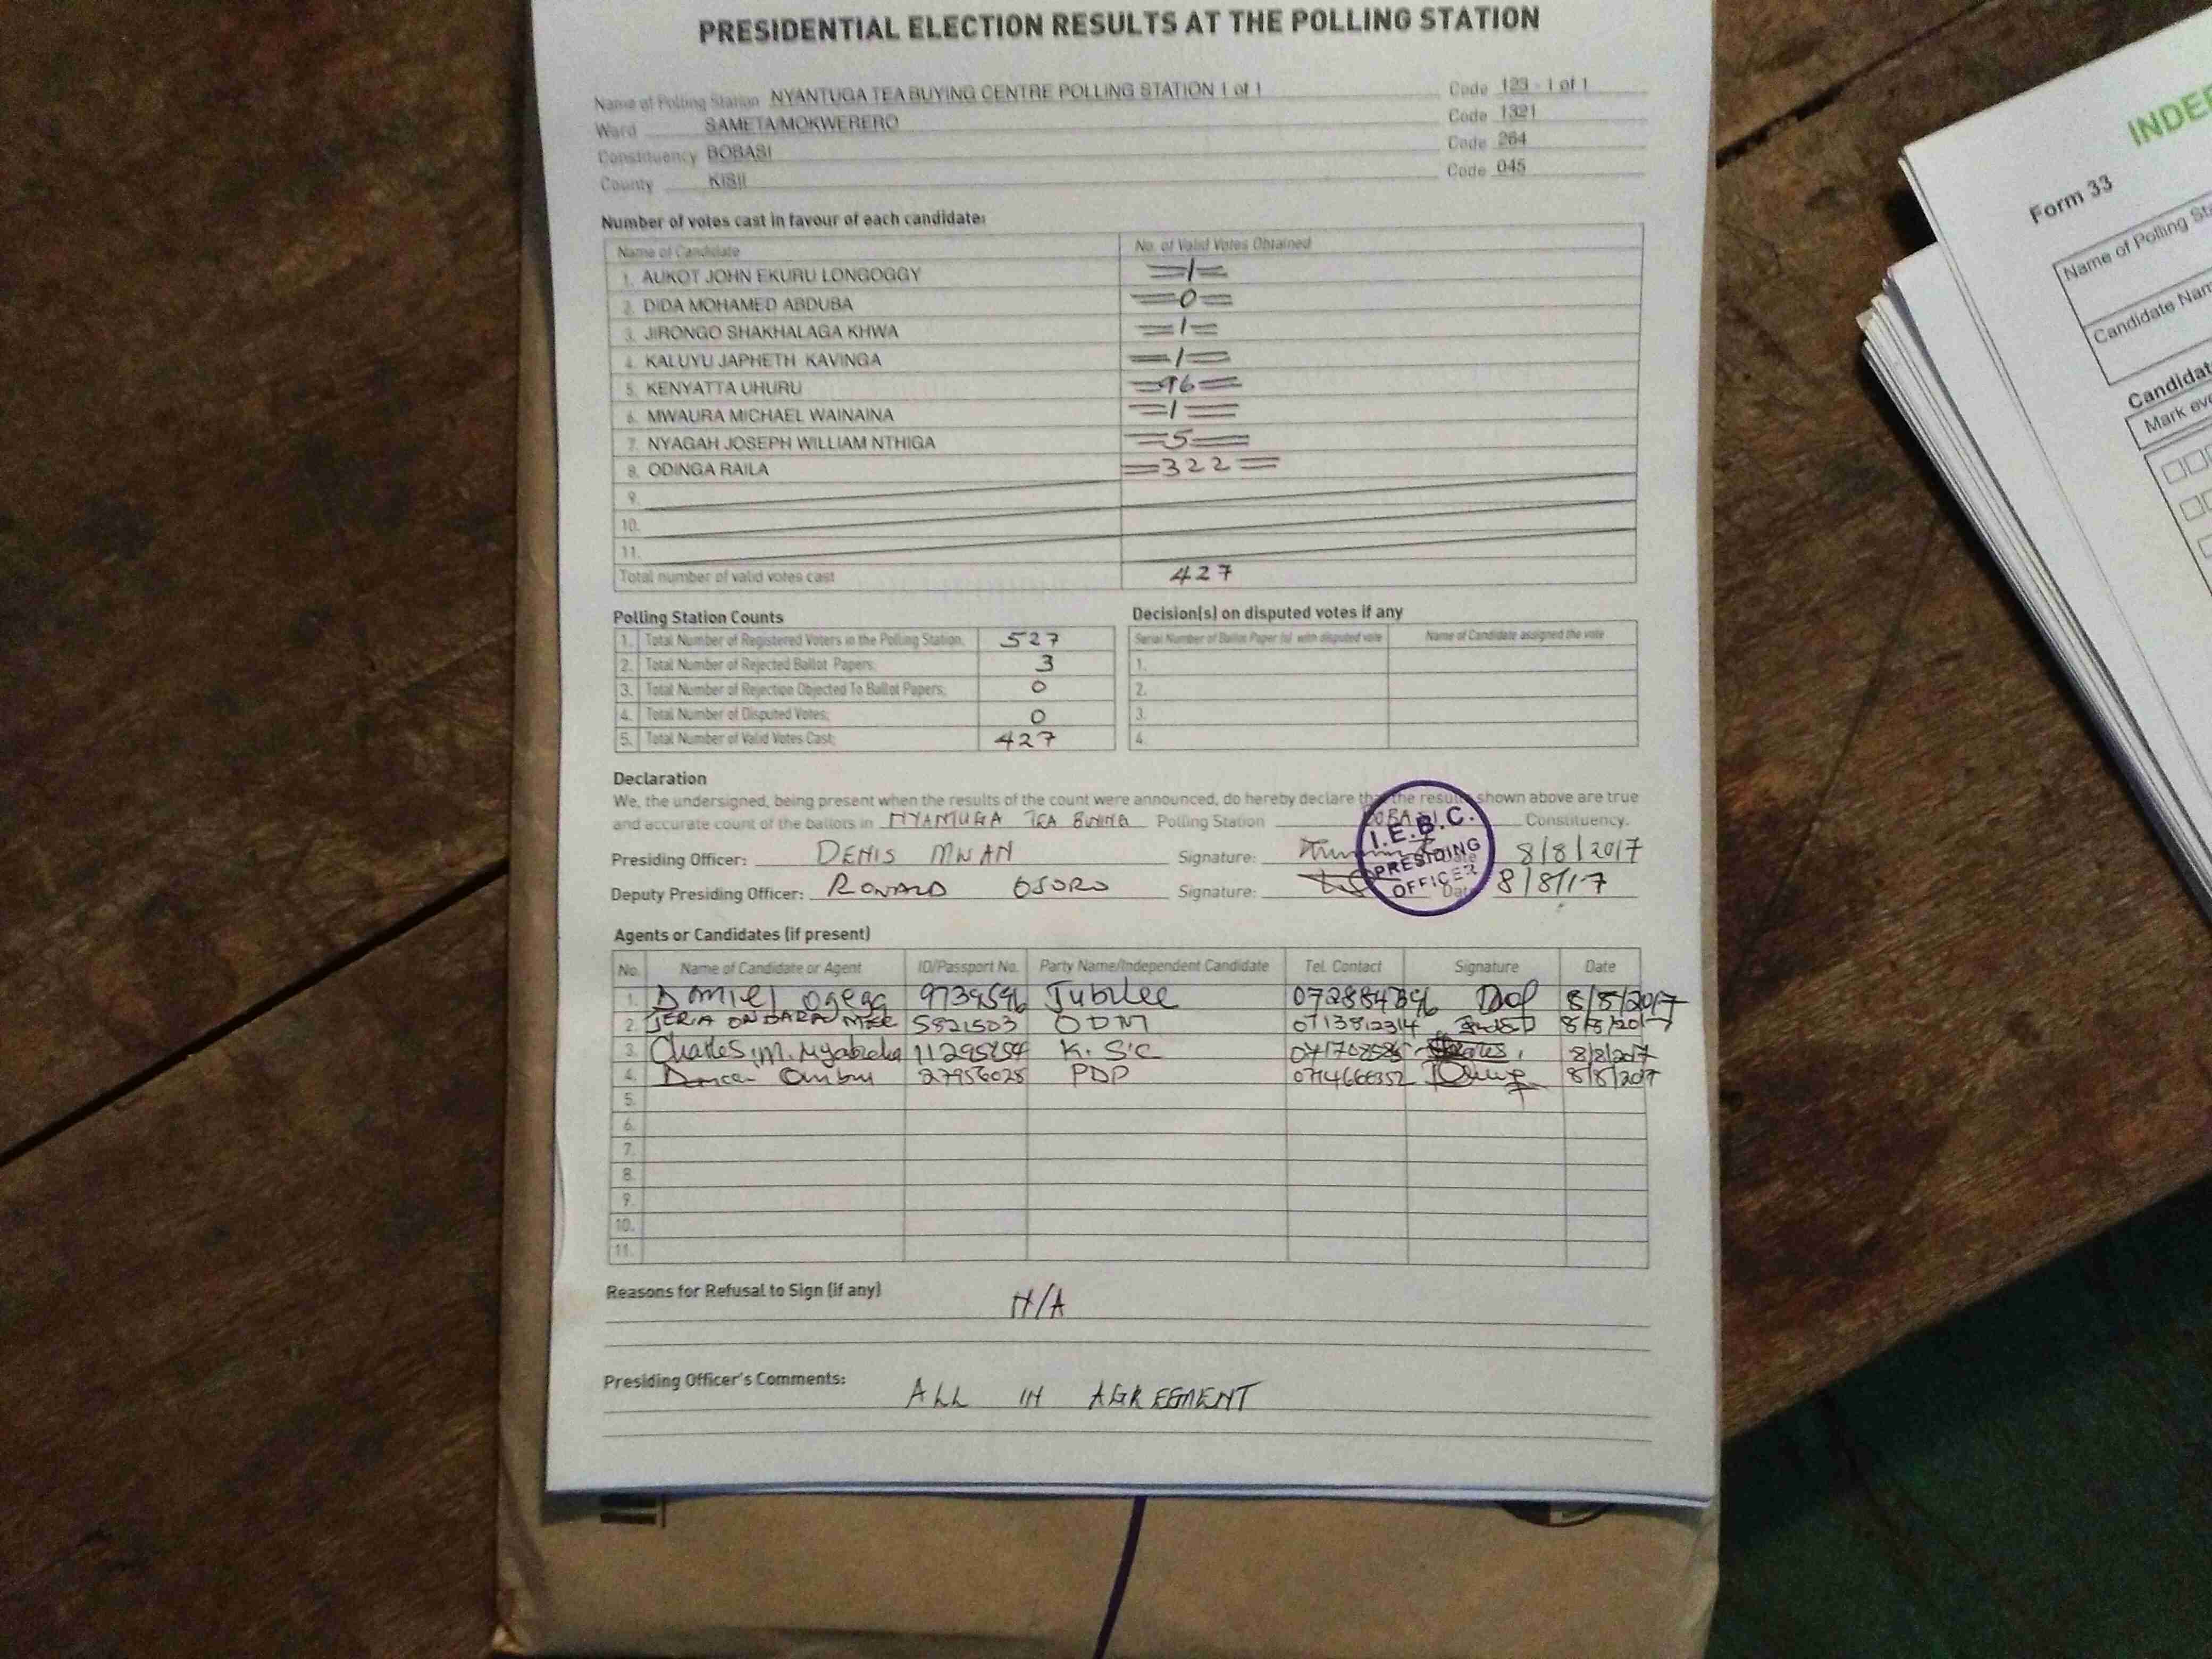 PRESIDENTIAL ELECTION RESULTS AT THE POLLING STATION
Name of Polling Station NYANTUGA TEA BUYING CENTRE POLLING STATION 1 of 1 Code 123 - 1 of 1
Ward SAMETA/MOKWERERO Code 1321
Constituency BOBASI Code 264
County KISII Code 045
Number of votes cast in favour of each candidate:
Name of Candidate No. of Valid Votes Obtained
1. AUKOT JOHN EKURU LONGOGGY =1=
2. DIDA MOHAMED ABDUBA =0=
3. JIRONGO SHAKHALAGA KHWA =1=
4. KALUYU JAPHETH KAVINGA =1=
5. KENYATTA UHURU =96=
6. MWAURA MICHAEL WAINAINA =1=
7. NYAGAH JOSEPH WILLIAM NTHIGA =5=
8. ODINGA RAILA =322=
9.
10.
11.
Total number of valid votes cast 427
Polling Station Counts
1. Total Number of Registered Voters in the Polling Station. 527
2. Total Number of Rejected Ballot Papers; 3
3. Total Number of Rejection Objected To Ballot Papers; 0
4. Total Number of Disputed Votes; 0
5. Total Number of Valid Votes Cast; 427
Decision(s) on disputed votes if any
Serial Number of Ballot Paper (s) with disputed vote Name of Candidate assigned the vote
1.
2.
3.
4.
Declaration
We, the undersigned, being present when the results of the count were announced, do hereby declare that the results shown above are true
and accurate count of the ballots in NYANTUGA TEA BUYING Polling Station Constituency.
Presiding Officer: DENIS MWAN Signature: Date 8/8/2017
Deputy Presiding Officer: RONALD OSORO Signature: Date 8/8/17
I.E.B.C.
PRESIDING
OFFICER
Agents or Candidates (if present)
No. Name of Candidate or Agent ID/Passport No. Party Name/Independent Candidate Tel. Contact Signature Date
1. Daniel Ogega 9739596 Jubilee 8/8/2017
2. 5821503 ODM 0713812314 8/8/2017
3. Charles M. 11295254 K. SC 8/8/2017
4. 27956028 PDP 0714666352 8/8/2017
5.
6.
7.
8.
9.
10.
11.
Reasons for Refusal to Sign (if any)
N/A
Presiding Officer's Comments:
ALL IN AGREEMENT
Form 33
Name of Polling